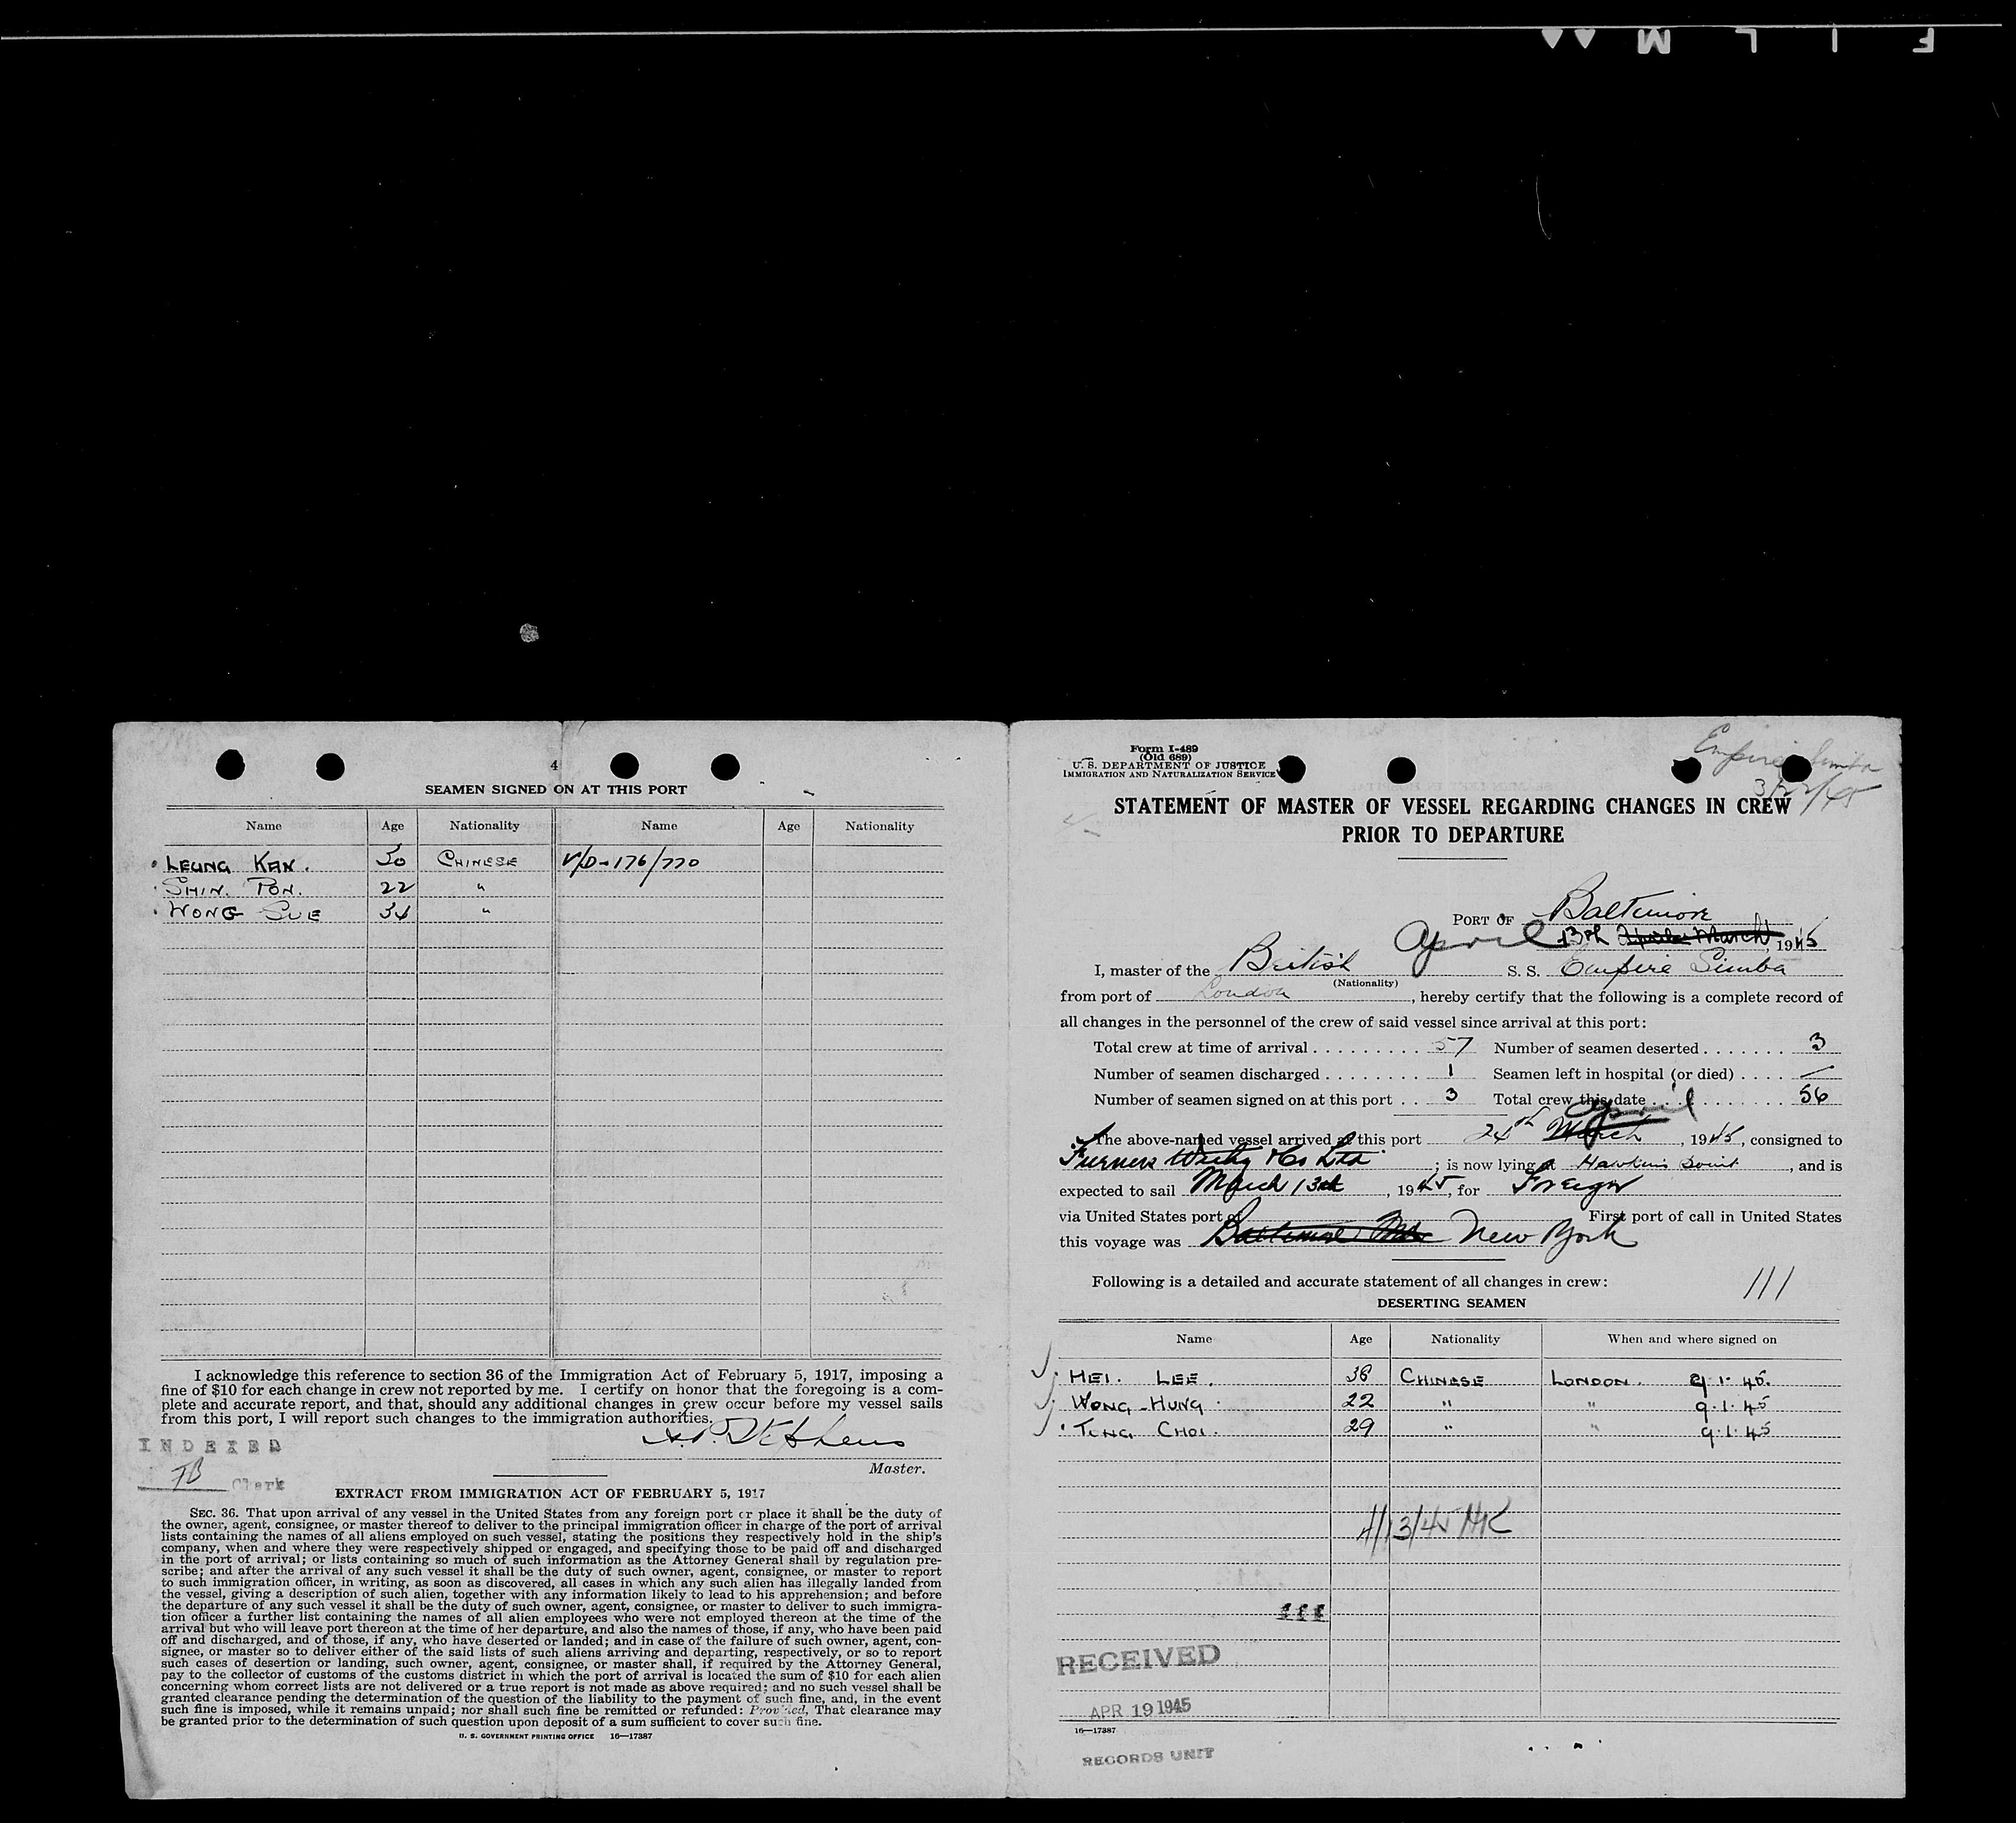 FILM
4
SEAMEN SIGNED ON AT THIS PORT
Name Age Nationality Name Age Nationality
LEUNG KAN. 30 CHINESE V/D-176/770
SHIN. PON. 22 "
WONG SUE 34 "
I acknowledge this reference to section 36 of the Immigration Act of February 5, 1917, imposing a
fine of $10 for each change in crew not reported by me. I certify on honor that the foregoing is a com-
plete and accurate report, and that, should any additional changes in crew occur before my vessel sails
from this port, I will report such changes to the immigration authorities.
INDEXED
TB Clerk
Master.
EXTRACT FROM IMMIGRATION ACT OF FEBRUARY 5, 1917
SEC. 36. That upon arrival of any vessel in the United States from any foreign port or place it shall be the duty of
the owner, agent, consignee, or master thereof to deliver to the principal immigration officer in charge of the port of arrival
lists containing the names of all aliens employed on such vessel, stating the positions they respectively hold in the ship's
company, when and where they were respectively shipped or engaged, and specifying those to be paid off and discharged
in the port of arrival; or lists containing so much of such information as the Attorney General shall by regulation pre-
scribe; and after the arrival of any such vessel it shall be the duty of such owner, agent, consignee, or master to report
to such immigration officer, in writing, as soon as discovered, all cases in which any such alien has illegally landed from
the vessel, giving a description of such alien, together with any information likely to lead to his apprehension; and before
the departure of any such vessel it shall be the duty of such owner, agent, consignee, or master to deliver to such immigra-
tion officer a further list containing the names of all alien employees who were not employed thereon at the time of the
arrival but who will leave port thereon at the time of her departure, and also the names of those, if any, who have been paid
off and discharged, and of those, if any, who have deserted or landed; and in case of the failure of such owner, agent, con-
signee, or master so to deliver either of the said lists of such aliens arriving and departing, respectively, or so to report
such cases of desertion or landing, such owner, agent, consignee, or master shall, if required by the Attorney General,
pay to the collector of customs of the customs district in which the port of arrival is located the sum of $10 for each alien
concerning whom correct lists are not delivered or a true report is not made as above required; and no such vessel shall be
granted clearance pending the determination of the question of the liability to the payment of such fine, and, in the event
such fine is imposed, while it remains unpaid; nor shall such fine be remitted or refunded: Provided, That clearance may
be granted prior to the determination of such question upon deposit of a sum sufficient to cover such fine.
U. S. GOVERNMENT PRINTING OFFICE 16—17387
Form I-489
(Old 689)
U. S. DEPARTMENT OF JUSTICE
IMMIGRATION AND NATURALIZATION SERVICE
Empire Simba
STATEMENT OF MASTER OF VESSEL REGARDING CHANGES IN CREW
PRIOR TO DEPARTURE
PORT OF Baltimore
April 13th March, 1945
I, master of the British S. S. Empire Simba
(Nationality)
from port of London, hereby certify that the following is a complete record of
all changes in the personnel of the crew of said vessel since arrival at this port:
Total crew at time of arrival 57 Number of seamen deserted 3
Number of seamen discharged 1 Seamen left in hospital (or died) —
Number of seamen signed on at this port 3 Total crew this date 56
April
The above-named vessel arrived at this port 24th March, 1945, consigned to
Furness Withy & Co Ltd; is now lying at Hawkins Point, and is
expected to sail March 13th, 1945, for Foreign
via United States port of First port of call in United States
this voyage was Baltimore Md New York
Following is a detailed and accurate statement of all changes in crew: 111
DESERTING SEAMEN
Name Age Nationality When and where signed on
HEI. LEE. 38 CHINESE LONDON. 9.1.45.
WONG-HUNG. 22 " " 9.1.45
TUNG CHOI. 29 " " 9.1.45
4/13/45
RECEIVED
APR 19 1945
16—17387
RECORDS UNIT